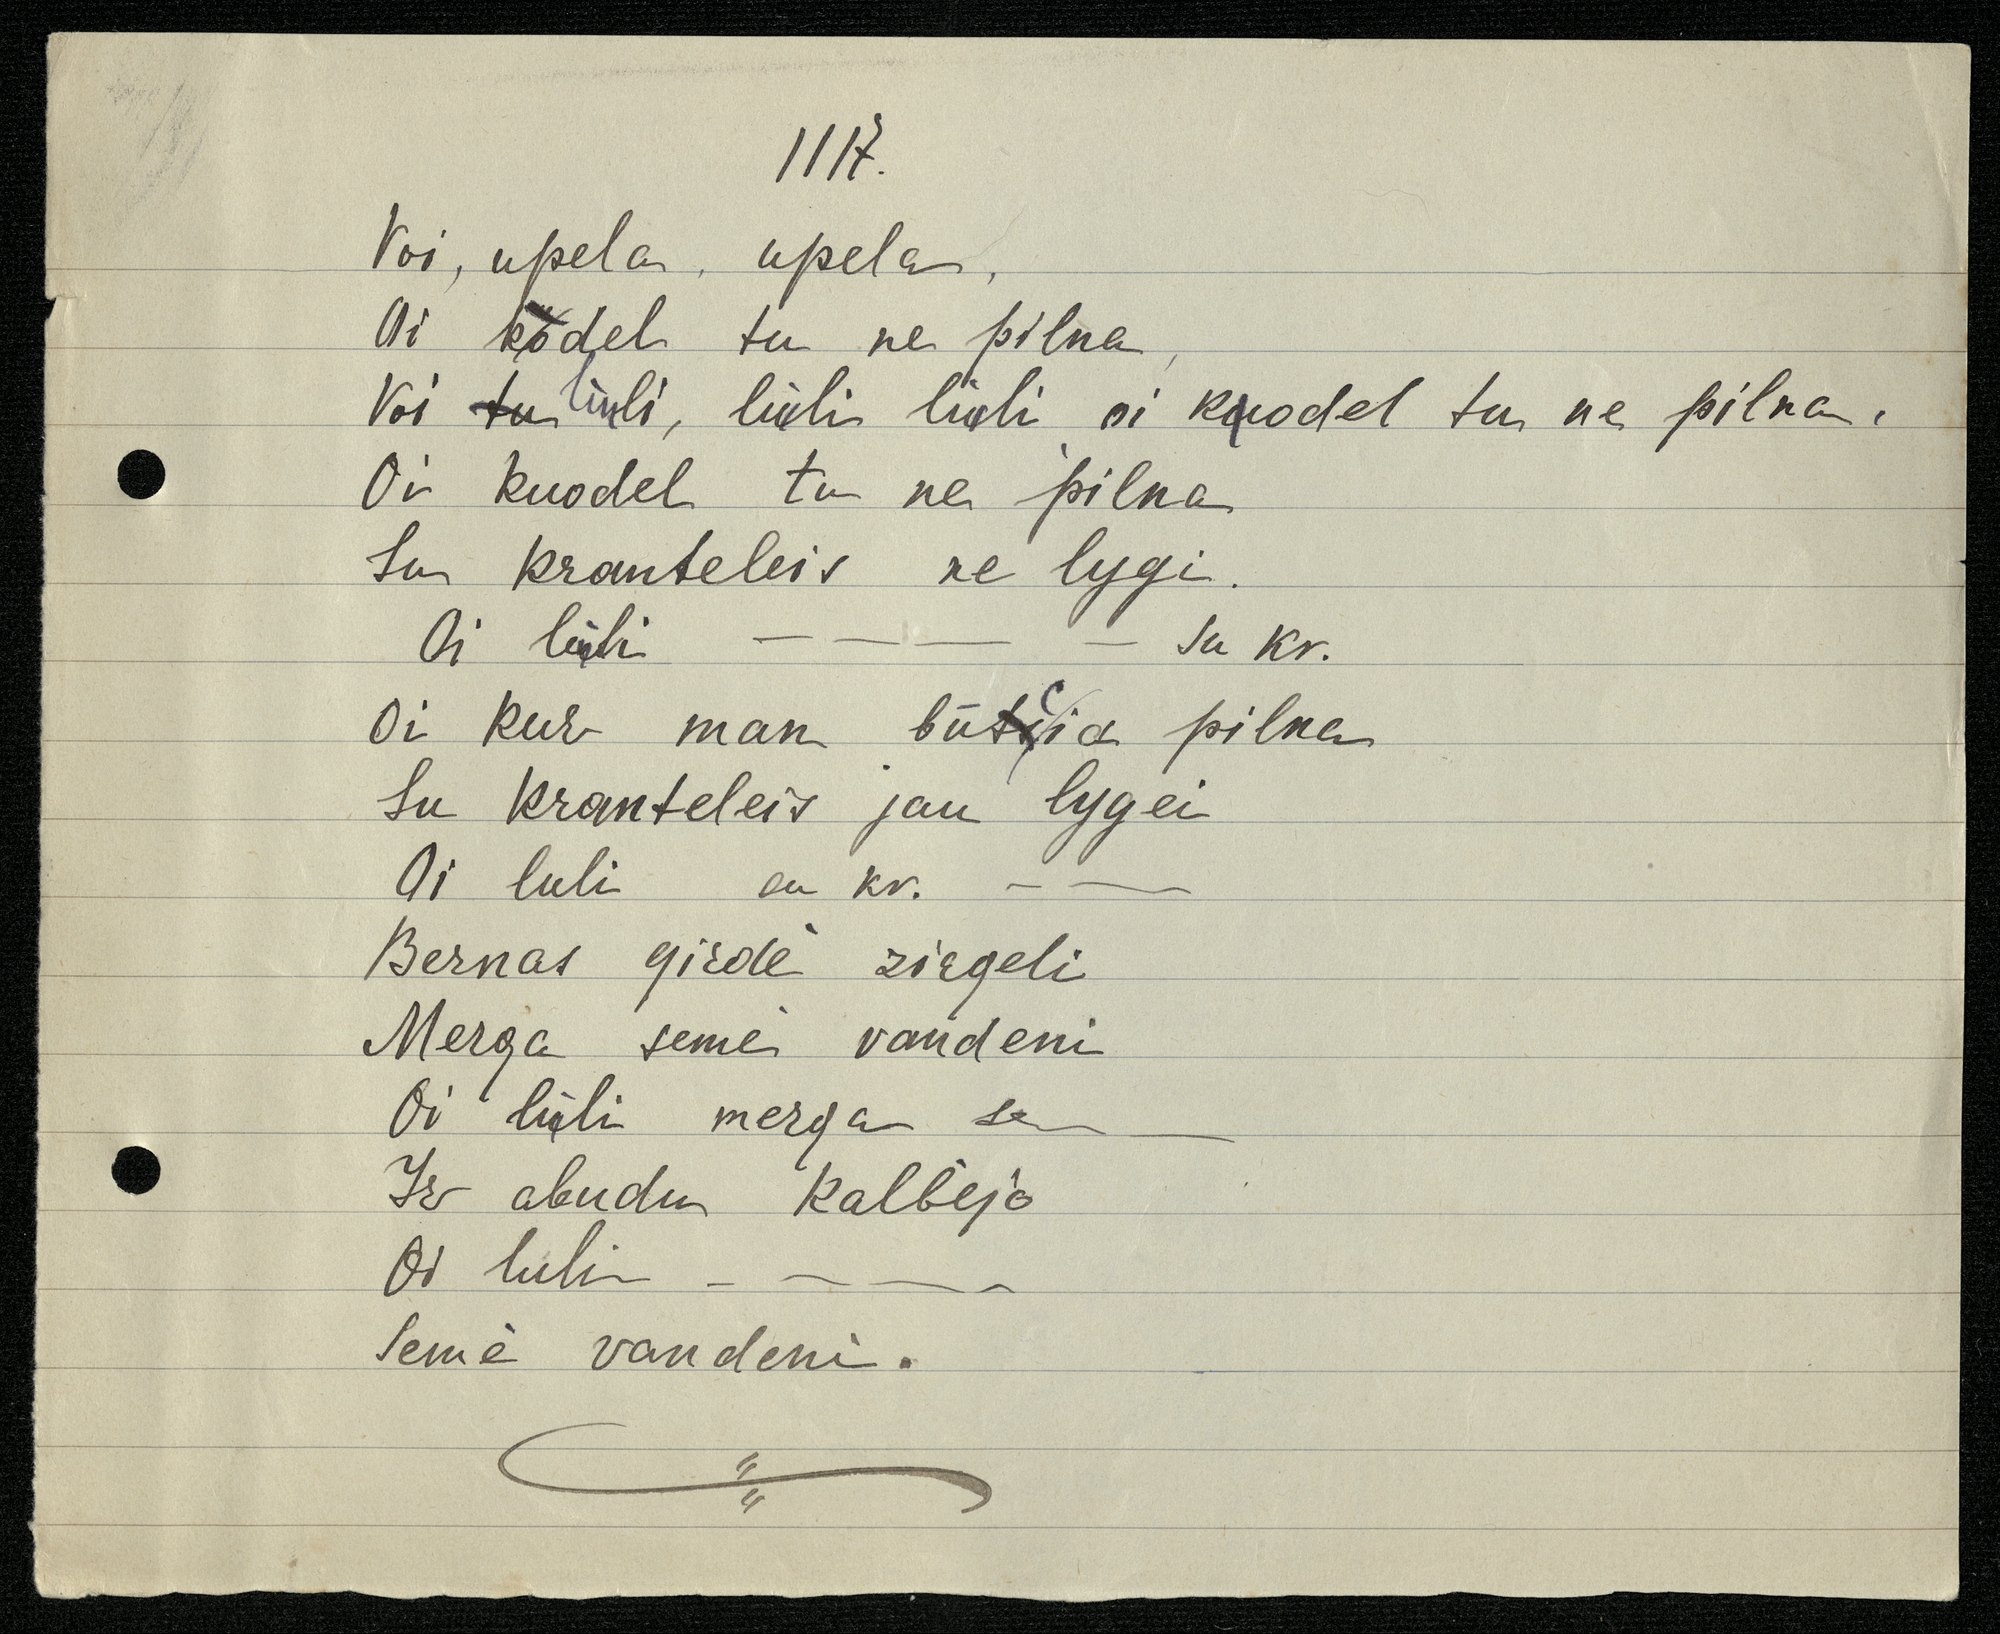 1117.
Voi, upela, upela,
Oi kodel tu ne pilna,
Voi liuli, liuli liuli oi kuodel tu ne pilna.
Oi kuodel tu ne pilna
Su kranteleis ne lygi.
Oi liuli — — — — su kr.
Oi kur man būčia pilna
Su kranteleis jau lygei
Oi luli su kr. — —
Bernas girdė zirgeli
Merga semė vandeni
Oi liuli merga se —
Ir abudu kalbėjo
Oi luli — — — —
Semė vandeni.